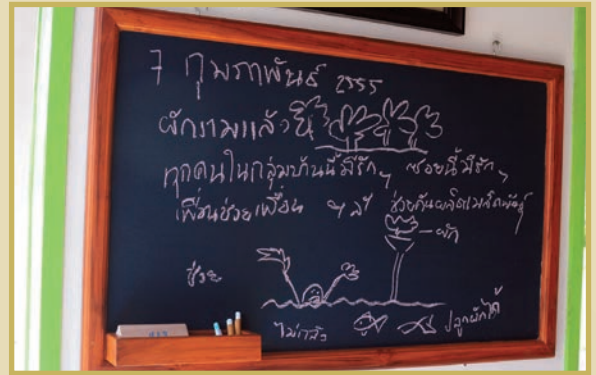 7 กุมภาพันธ์ 2555
ผักงามแล้วมี
ทุกคนในกลุ่มบ้านนี้มีรัก ๆ ซอยนี้มีรัก ๆ
เพื่อนช่วยเพื่อน ช่วยกันผลิตเมล็ดพันธุ์
ผัก
ช่วย
ไม่กลัว
ปลูกผักได้